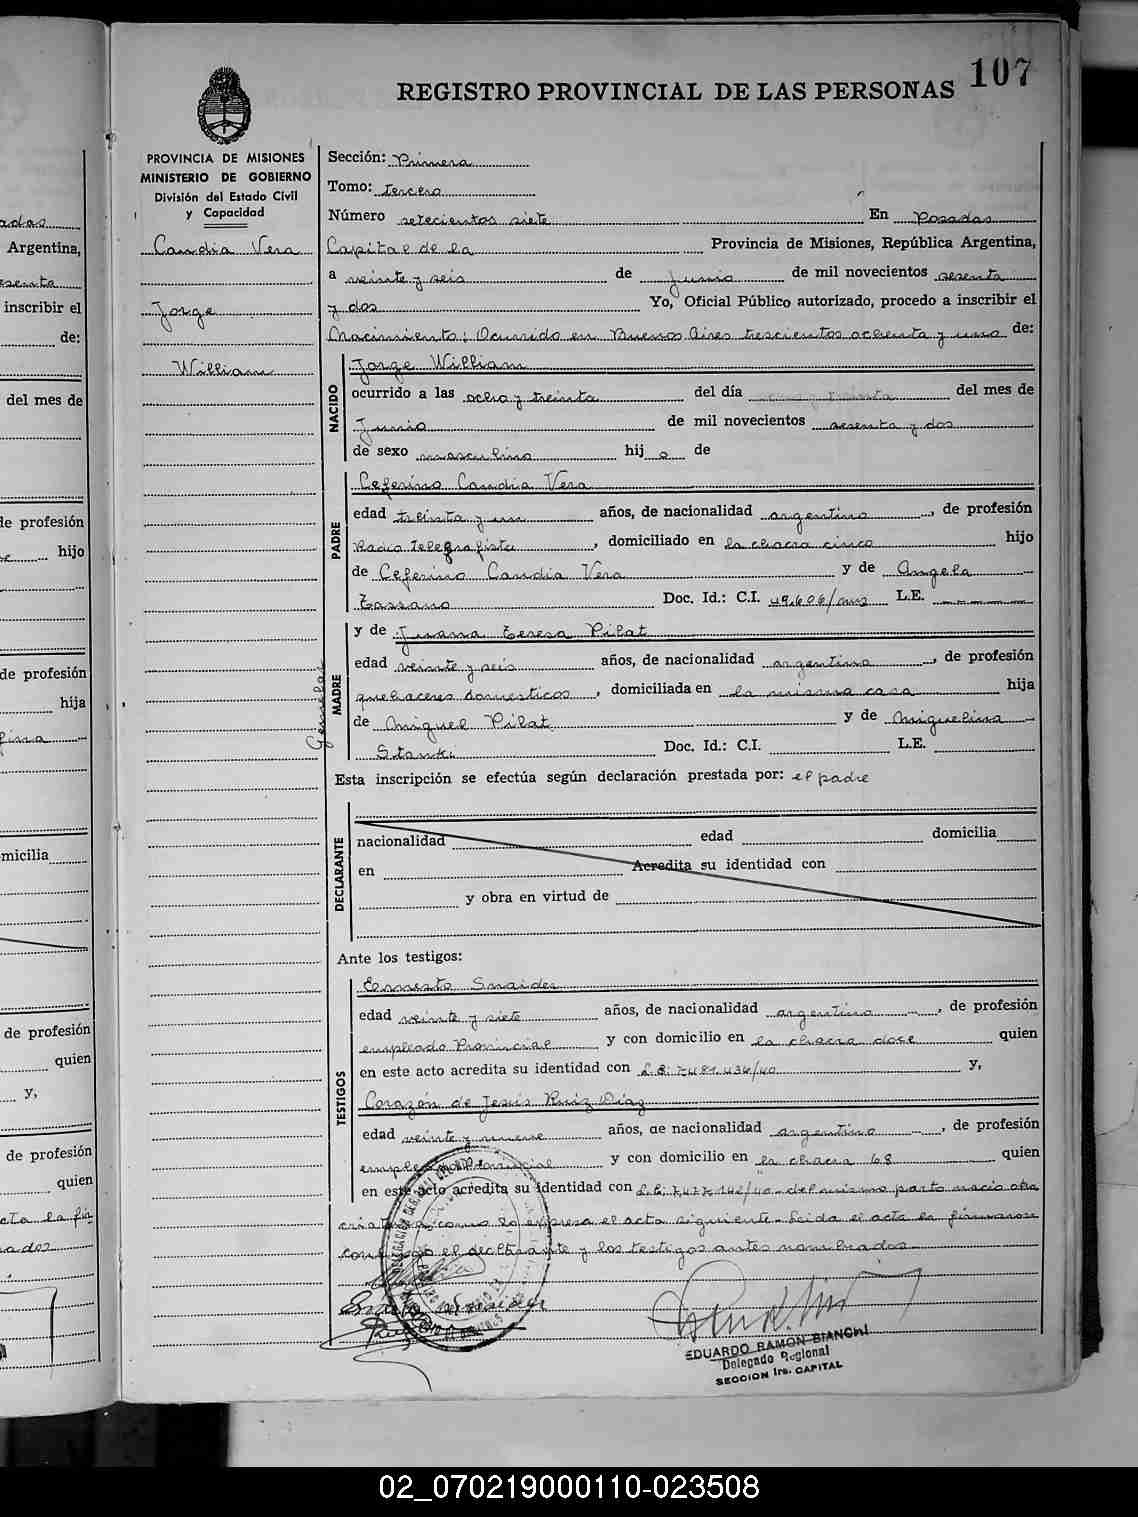 107
REGISTRO PROVINCIAL DE LAS PERSONAS
PROVINCIA DE MISIONES
MINISTERIO DE GOBIERNO
División del Estado Civil
y Capacidad
Candia Vera
Jorge
William
Gemelar
Sección: Primera
Tomo: tercero
Número setecientos siete En Posadas
Capital de la Provincia de Misiones, República Argentina,
a veinte y seis de Junio de mil novecientos sesenta
y dos Yo, Oficial Público autorizado, procedo a inscribir el
Nacimiento; Ocurrido en Buenos Aires trescientos ochenta y uno de:
NACIDO
Jorge William
ocurrido a las ocho y treinta del día del mes de
Junio de mil novecientos sesenta y dos
de sexo masculino hij o de
PADRE
Ceferino Candia Vera
edad treinta y un años, de nacionalidad argentino, de profesión
Radio Telegrafista, domiciliado en la chacra cinco hijo
de Ceferino Candia Vera y de Angela
Zassano Doc. Id.: C.I. 49.606/mns L.E.
MADRE
y de Juana Teresa Pilat
edad veinte y seis años, de nacionalidad argentina, de profesión
quehaceres domesticos, domiciliada en la misma casa hija
de Miguel Pilat y de Miguelina
Stanki Doc. Id.: C.I. L.E.
Esta inscripción se efectúa según declaración prestada por: el padre
DECLARANTE
nacionalidad edad domicilia
en Acredita su identidad con
y obra en virtud de
Ante los testigos:
TESTIGOS
Ernesto Snaider
edad veinte y siete años, de nacionalidad argentino, de profesión
empleado Provincial y con domicilio en la chacra doce quien
en este acto acredita su identidad con L.E. 7.481.434/40 y,
Corazón de Jesús Ruiz Diaz
edad veinte y nueve años, de nacionalidad argentino, de profesión
empleado Provincial y con domicilio en la chacra 68 quien
en este acto acredita su identidad con L.E. 7.477.142/40 - del mismo parto nacio otra
criatura como lo expresa el acta siguiente - Leida el acta la firmaron
conmigo el declarante y los testigos antes nombrados
EDUARDO RAMON BIANCHI
Delegado Regional
SECCION 1ra. CAPITAL
adas
Argentina,
sesenta
inscribir el
de:
del mes de
de profesión
hijo
de profesión
hija
fina
micilia
de profesión
quien
y,
de profesión
quien
cta la fir
ados
02_070219000110-023508